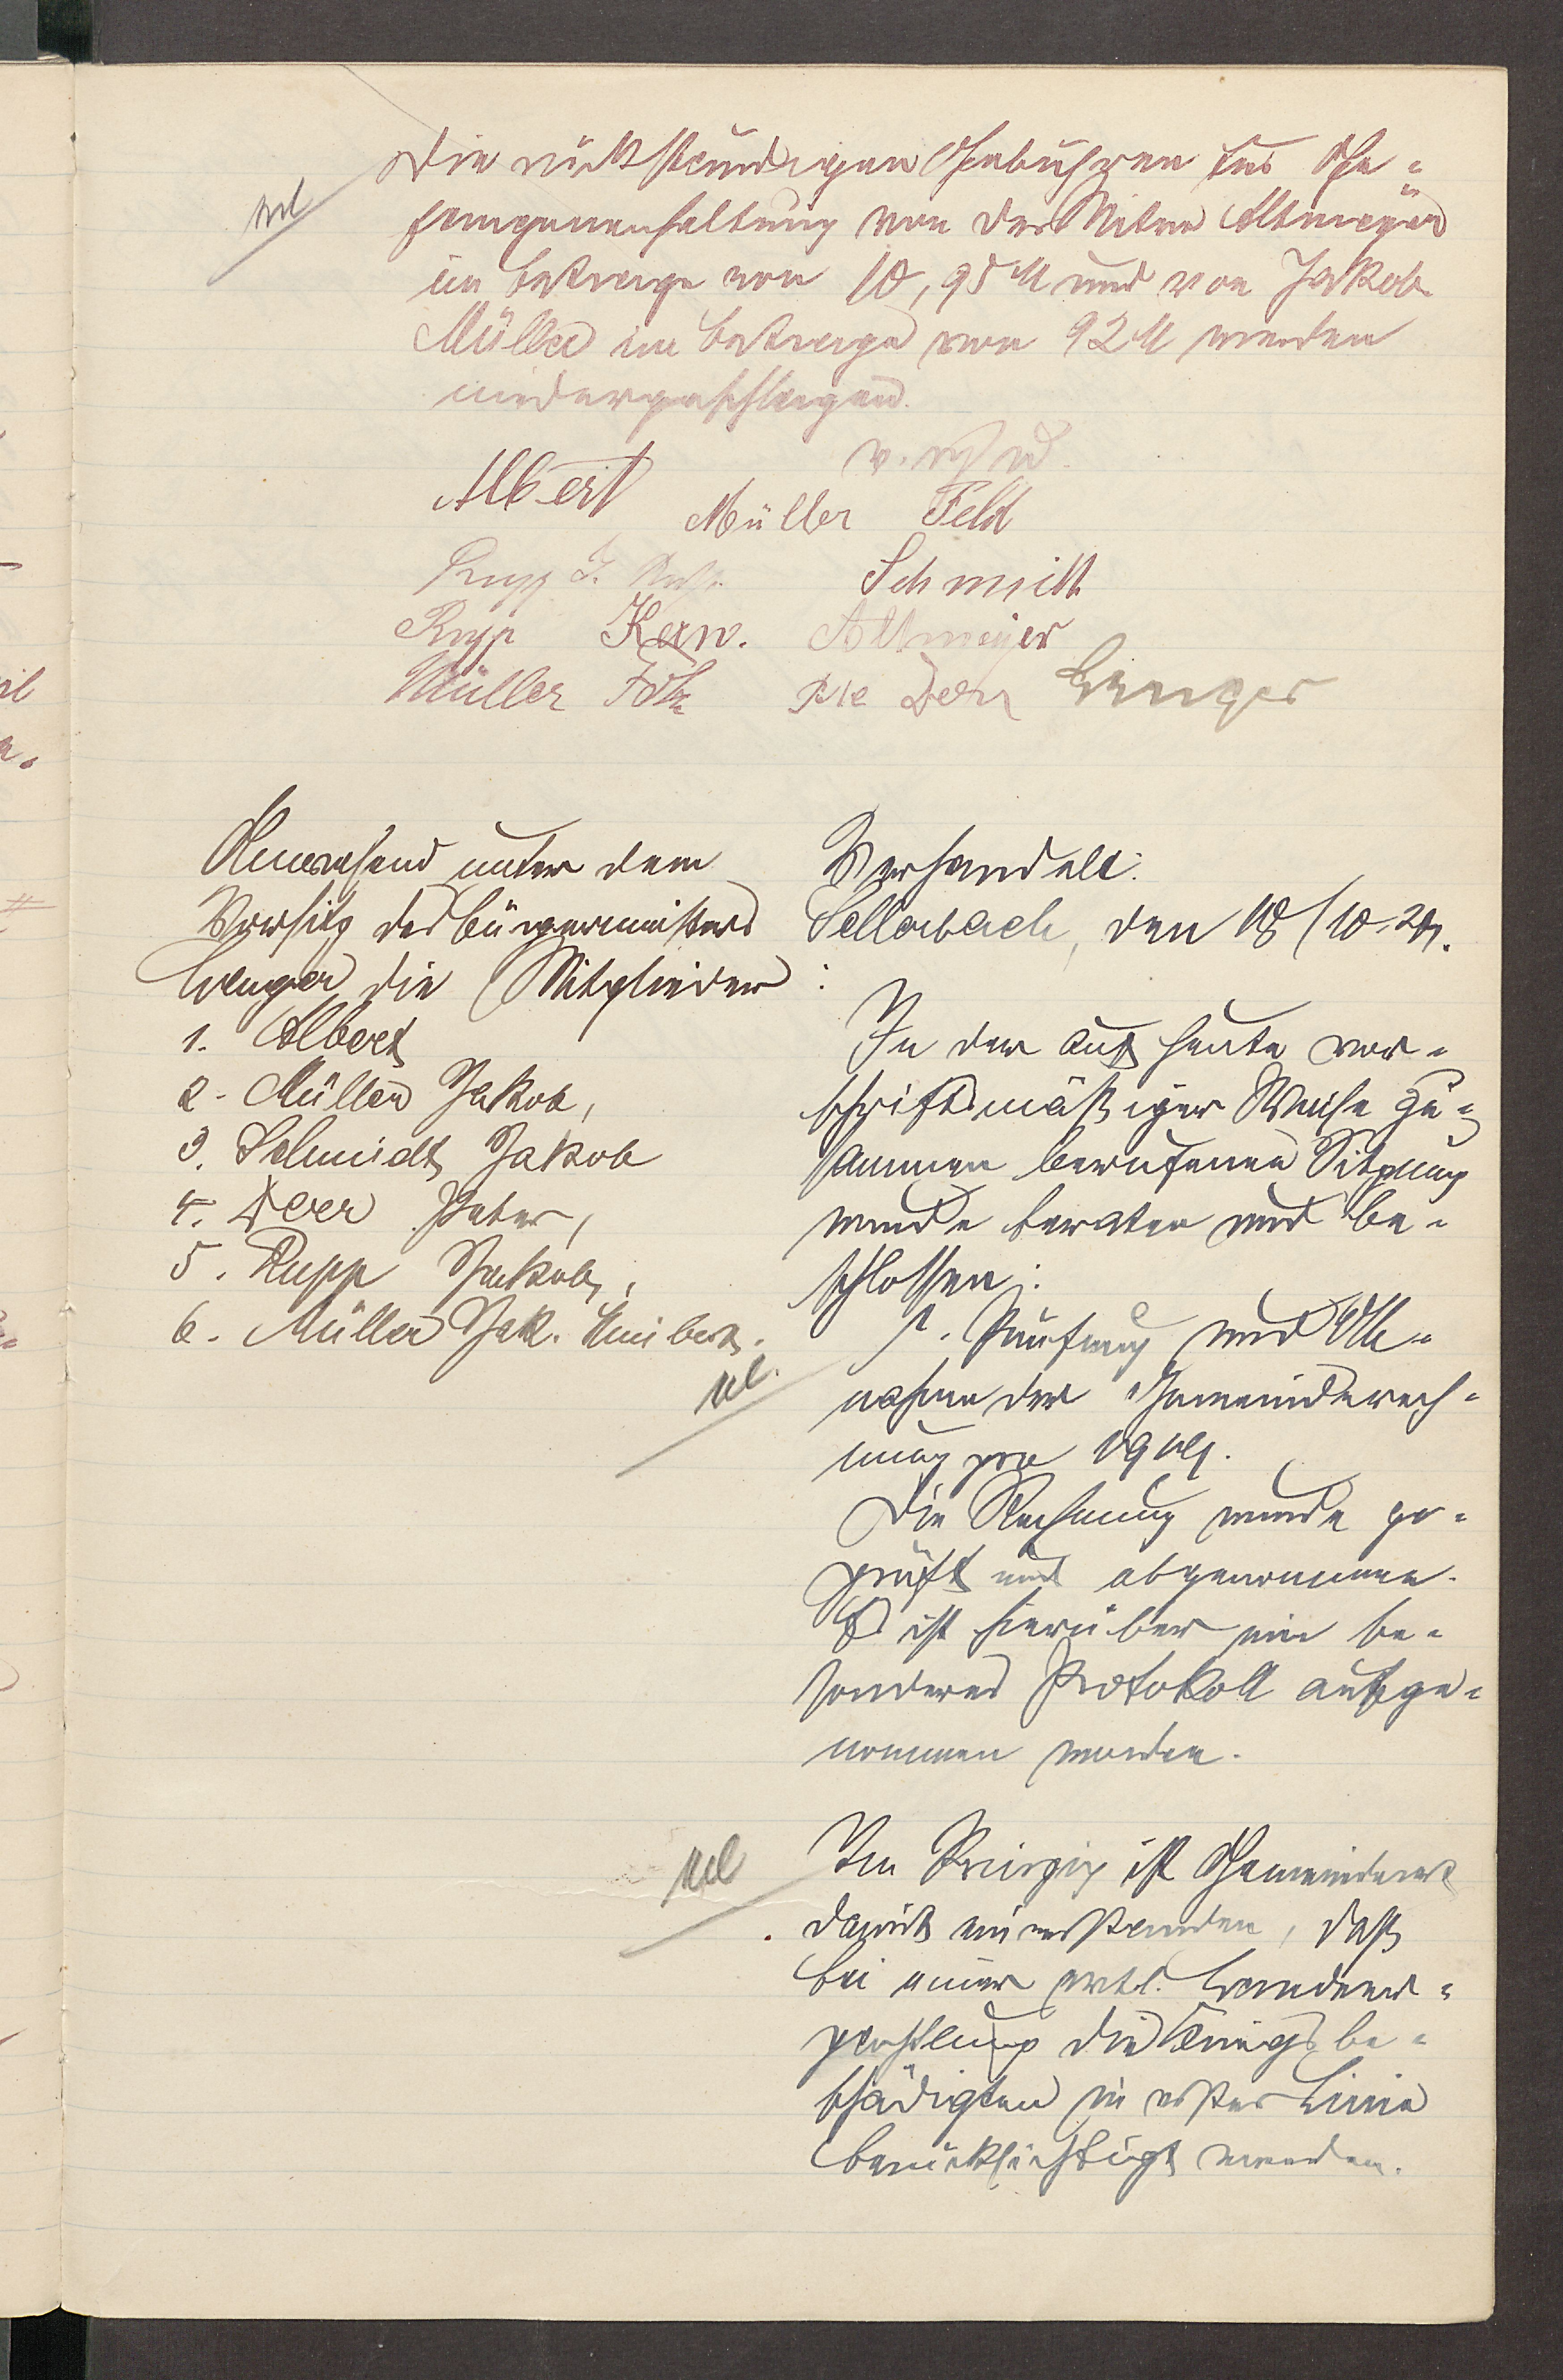 Die rückständigen Gebühren für Ge-
fangenenhaltung von der Witwe Altmeyer
im Betrage von 10,95 M und von Jakob
Müller im Betrage von 92 M werden
niedergeschlagen.
v. w. o.
Albert Müller Feld
Rupp J. Schmidt
Rupp Altmeyer
Müller Folz Deer Wenger
Anwesend unter dem
Vorsitz des Bürgermeisters
Wenger die Mitglieder:
1. Albert
2. Müller Jakob,
3. Schmidt Jakob
4. Deer Peter,
5. Rupp Jakob,
6. Müller Jak.
Verhandelt:
Sellerbach, den 18/10.21.
In der auf heute vor-
schriftsmäßiger Weise zu-
sammen berufenen Sitzung
wurde beraten und be-
schlossen:
1. Prüfung und Ab-
nahme der Gemeinderech-
nung pro 1919.
Die Rechnung wurde ge-
prüft und abgenommen.
Es ist hierüber ein be-
sonderes Protokoll aufge-
nommen worden.
Im Prinzip ist Gemeinderat
damit einverstanden, daß
bei einer evtl. Landver-
pachtung die Kriegsbe-
schädigten in erster Linie
berücksichtigt werden.